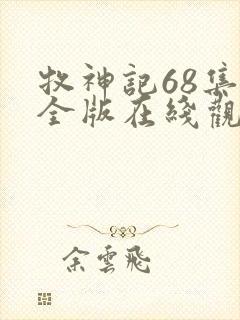 牧神記68集
全版在綫觀
余雲飛